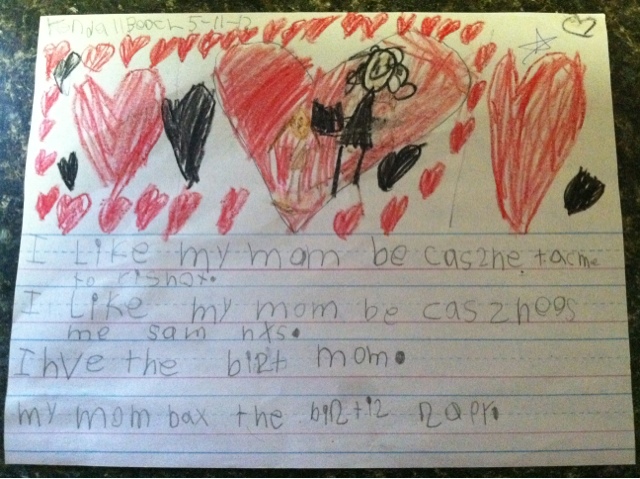 Kendall Booch 5-11-12
I Like my mom be cas2he tacme
to rishox.
I Like my mom be cas2hegs
me sam hxs.
I hve the bi2t mom.
my mom bax the bi2ti2 2app.